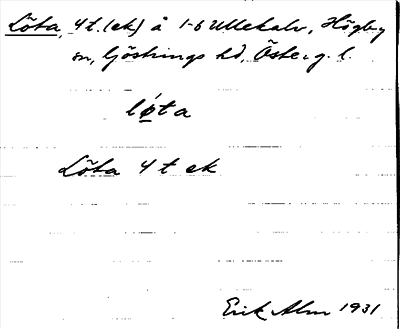 Löta, 4 t. (ek) å 1-6 Ullekalv, Högby
sn, Göstrings hd, Österg. l.
løta
Löta 4 t ek
Erik Alm 1931